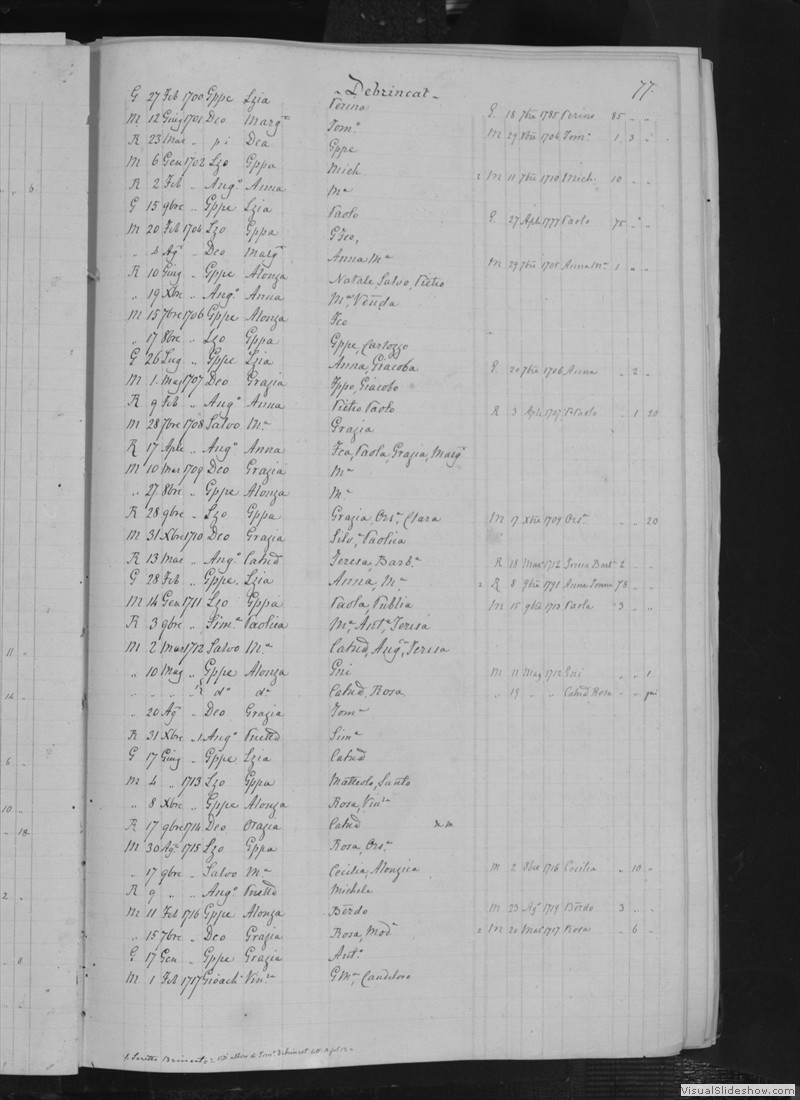 Debrincat
77.
G 27 Feb 1700 Gppe Lzia Perina G. 18 7bre 1785 Perina 85 " "
M 12 Giug 1701 Deo Marga Toma M 29 8bre 1706 Toma 1 3 "
R 23 Mar " pi Dea Gppe
M 6 Gen 1702 Lzo Gppa Mich 2 M 11 7bre 1710 Mich. 10 " "
R 2 Feb " Ango Anna Ma
G 15 9bre " Gppe Lzia Paolo G. 27 Aple 1777 Paolo 75 " "
M 20 Feb 1704 Lzo Gppa GFeo,
" 4 Ago " Deo Marga Anna Ma M 29 7bre 1705 Anna Ma 1 " "
R 10 Giug " Gppe Alonza Natale, Salvo, Pietro
" 19 Xbre " Ango Anna Ma, Venda
M 15 7bre 1706 Gppe Alonza Feo
" 17 8bre " Lzo Gppa Gppe, Carlozzo
G 26 Lug " Gppe Lzia Anna, Giacoba G. 20 7bre 1706 Anna " 2 "
M 1. Mag 1707 Deo Grazia Fppo, Giacobo
R 9 Feb " Ango Anna Pietro Paolo R 3 Aple 1707 P Paolo " 1 20
M 28 7bre 1708 Salvo Ma Grazia
R 17 Aple " Ango Anna Fca, Paola, Grazia, Marga
M 10 Mar 1709 Deo Grazia Ma
" 27 8bre " Gppe Alonza Ma
R 28 9bre " Lzo Gppa Grazia, Orsa, Clara M 17 Xbre 1709 Orsa " " 20
M 31 Xbre 1710 Deo Grazia Silva, Paolica
R 13 Mar " Ango Catnd Teresa, Barba R 18 Mar 1712 Teresa Barba 2 "
G 28 Feb " Gppe Lzia Anna, Ma 2 R 8 9bre 1791 Anna 78 " "
M 14 Gen 1711 Lzo Gppa Paola, Publia M 15 9bre 1713 Paola 3 " "
R 3 9bre " Sima Paolica Ma, Anta, Teresa
M 2 Mar 1712 Salvo Ma Catnd, Anga, Teresa
" 10 Mag " Gppe Alonza Gni M 11 Mag 1712 Gni " " 1
" " " " R do do Catnd, Rosa " 19 " " Catnd Rosa " "
" 20 Ago " Deo Grazia Toma
R 31 Xbre " Ango Sima
G 17 Giug " Gppe Lzia Catnd
M 4 " 1713 Lzo Gppa Matteolo, Santo
" 8 Xbre " Gppe Alonza Rosa, Vinza
R 17 9bre 1714 Deo Grazia Catnd
M 30 Ago 1715 Lzo Gppa Rosa, Orsa
" 17 9bre " Salvo Ma Cecilia, Alonzica M 2 8bre 1716 Cecilia " 10 "
R 9 " " Ango Michela
M 11 Feb 1716 Gppe Alonza Berdo M 23 Ago 1719 Berdo 3 " "
" 15 7bre " Deo Grazia Rosa, Moda 2 M 20 Mar 1717 Rosa " 6 "
G 17 Gen " Gppe Grazia Anto
M 1 Feb 1717 Gioach Vinza GMa, Candeloro
VisualSlideshow.com